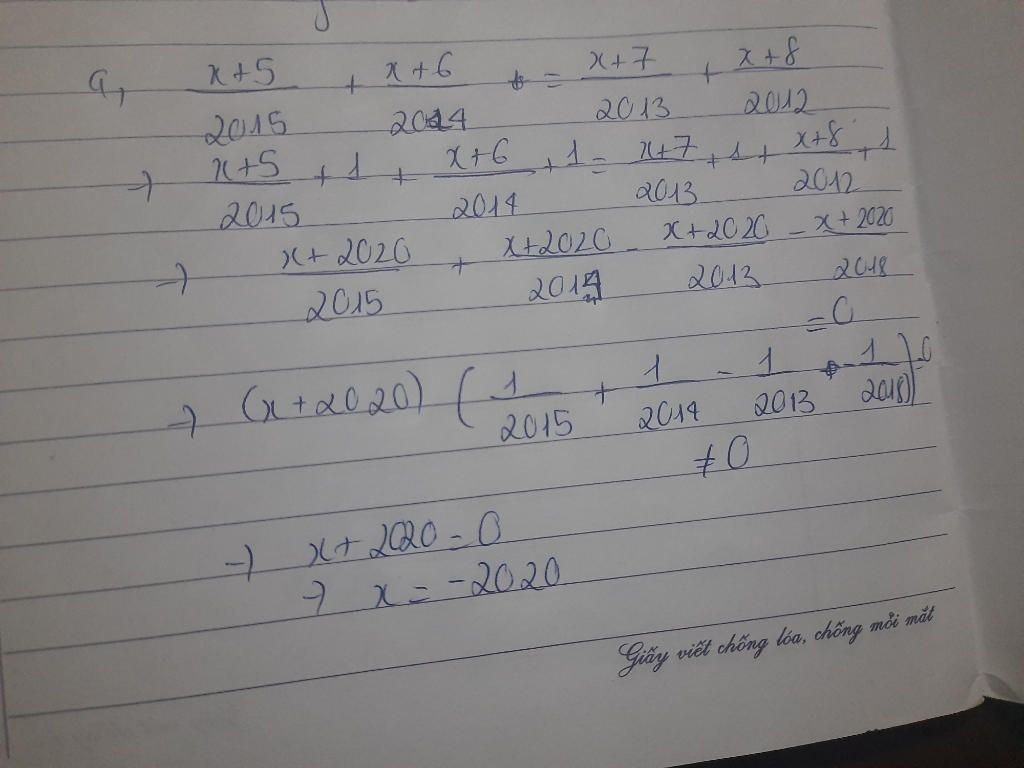 a, x+5/2015 + x+6/2014 = x+7/2013 + x+8/2012
→ x+5/2015 + 1 + x+6/2014 + 1 = x+7/2013 + 1 + x+8/2012 + 1
→ x+2020/2015 + x+2020/2014 - x+2020/2013 - x+2020/2018
= 0
→ (x+2020) (1/2015 + 1/2014 - 1/2013 - 1/2018) = 0
≠ 0
→ x+2020 = 0
→ x = -2020
Giấy viết chống lóa, chống mỏi mắt